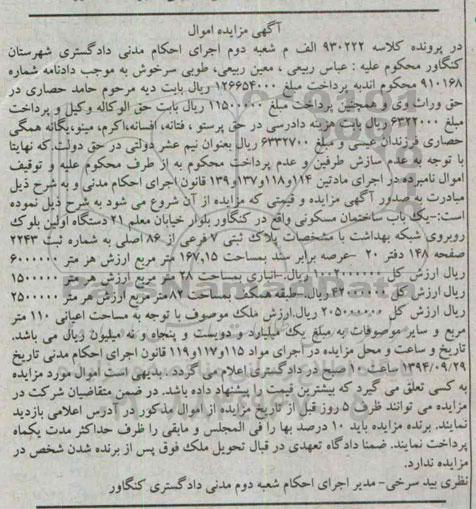 آگهی مزایده اموال
در پرونده کلاسه ۹۳۰۲۲۲ الف م شعبه دوم اجرای احکام مدنی دادگستری شهرستان
کنگاور محکوم علیه : عباس ربیعی ، معین ربیعی، طوبی سرخوش به موجب دادنامه شماره
۹۱۰۱۶۸ محکوم اندبه پرداخت مبلغ ۱۲۶۶۵۴۰۰۰ ریال بابت دیه مرحوم حامد حصاری در
حق وراث وی و همچنین پرداخت مبلغ ۱۱۵۰۰۰۰۰ ریال بابت حق الوکاله وکیل و پرداخت
مبلغ ۶۳۲۲۰۰۰ ریال بابت هزینه دادرسی در حق پرستو ، فتانه، افسانه،اکرم، مینو،یگانه همگی
حصاری فرزندان عیسی و مبلغ ۶۳۳۲۷۰۰ ریال بعنوان نیم عشر دولتی در حق دولت.که نهایتا
با توجه به عدم سازش طرفین و عدم پرداخت محکوم به از طرف محکوم علیه و توقیف
اموال نامبرده،در اجرای مادتین ۱۱۴و۱۱۸و۱۳۷و۱۳۹ قانون اجرای احکام مدنی و به شرح ذیل
مبادرت به صدور آگهی مزایده و قیمتی که مزایده از آن شروع می شود به شرح ذیل نموده
است:-یک باب ساختمان مسکونی واقع در کنگاور بلوار خیابان معلم ۲۱ دستگاه اولین بلوک
روبروی شبکه بهداشت با مشخصات پلاک ثبتی ۷ فرعی از ۸۶ اصلی به شماره ثبت ۲۲۴۳
صفحه ۱۴۸ دفتر ۲۰ -عرصه برابر سند بمساحت ۱۶۷,۱۵ متر مربع ارزش هر متر ۶۰۰۰۰۰۰
ریال ارزش کل ۱۰۰۲۰۰۰۰۰۰ ریال.-انباری بمساحت ۲۸ متر مربع ارزش هر متر ۱۵۰۰۰۰۰
ریال ارزش کل ۴۲۰۰۰۰۰۰ ریال-طبقه همکف بمساحت ۸۲متر مربع ارزش هر متر ۲۵۰۰۰۰۰
ریال ارزش کل ۲۰۵۰۰۰۰۰۰ ریال.ارزش ملک موصوف با توجه به مساحت اعیانی ۱۱۰ متر
مربع و سایر موصوفات به مبلغ یک میلیارد و دویست و پنجاه و نه میلیون ریال می باشد.
تاریخ و ساعت و محل مزایده در اجرای مواد ۱۱۵و۱۱۷و۱۱۹ قانون اجرای احکام مدنی تاریخ
۱۳۹۴/۰۹/۲۹ ساعت ۱۰ صبح در دادگستری اعلام می گردد . بدیهی است اموال مورد مزایده
به کسی تعلق می گیرد که بیشترین قیمت را پیشنهاد داده باشد. در ضمن متقاضیان شرکت در
مزایده می توانند ظرف ۵ روز قبل از تاریخ مزایده از اموال مذکور در آدرس اعلامی بازدید
نمایند. برنده مزایده باید ۱۰ درصد بها را فی المجلس و مابقی را ظرف حداکثر مدت یکماه
پرداخت نمایند. ضمنا دادگاه تعهدی در قبال تحویل ملک فوق پس از برنده شدن شخص در
مزایده ندارد.
نظری بید سرخی- مدیر اجرای احکام شعبه دوم مدنی دادگستری کنگاور